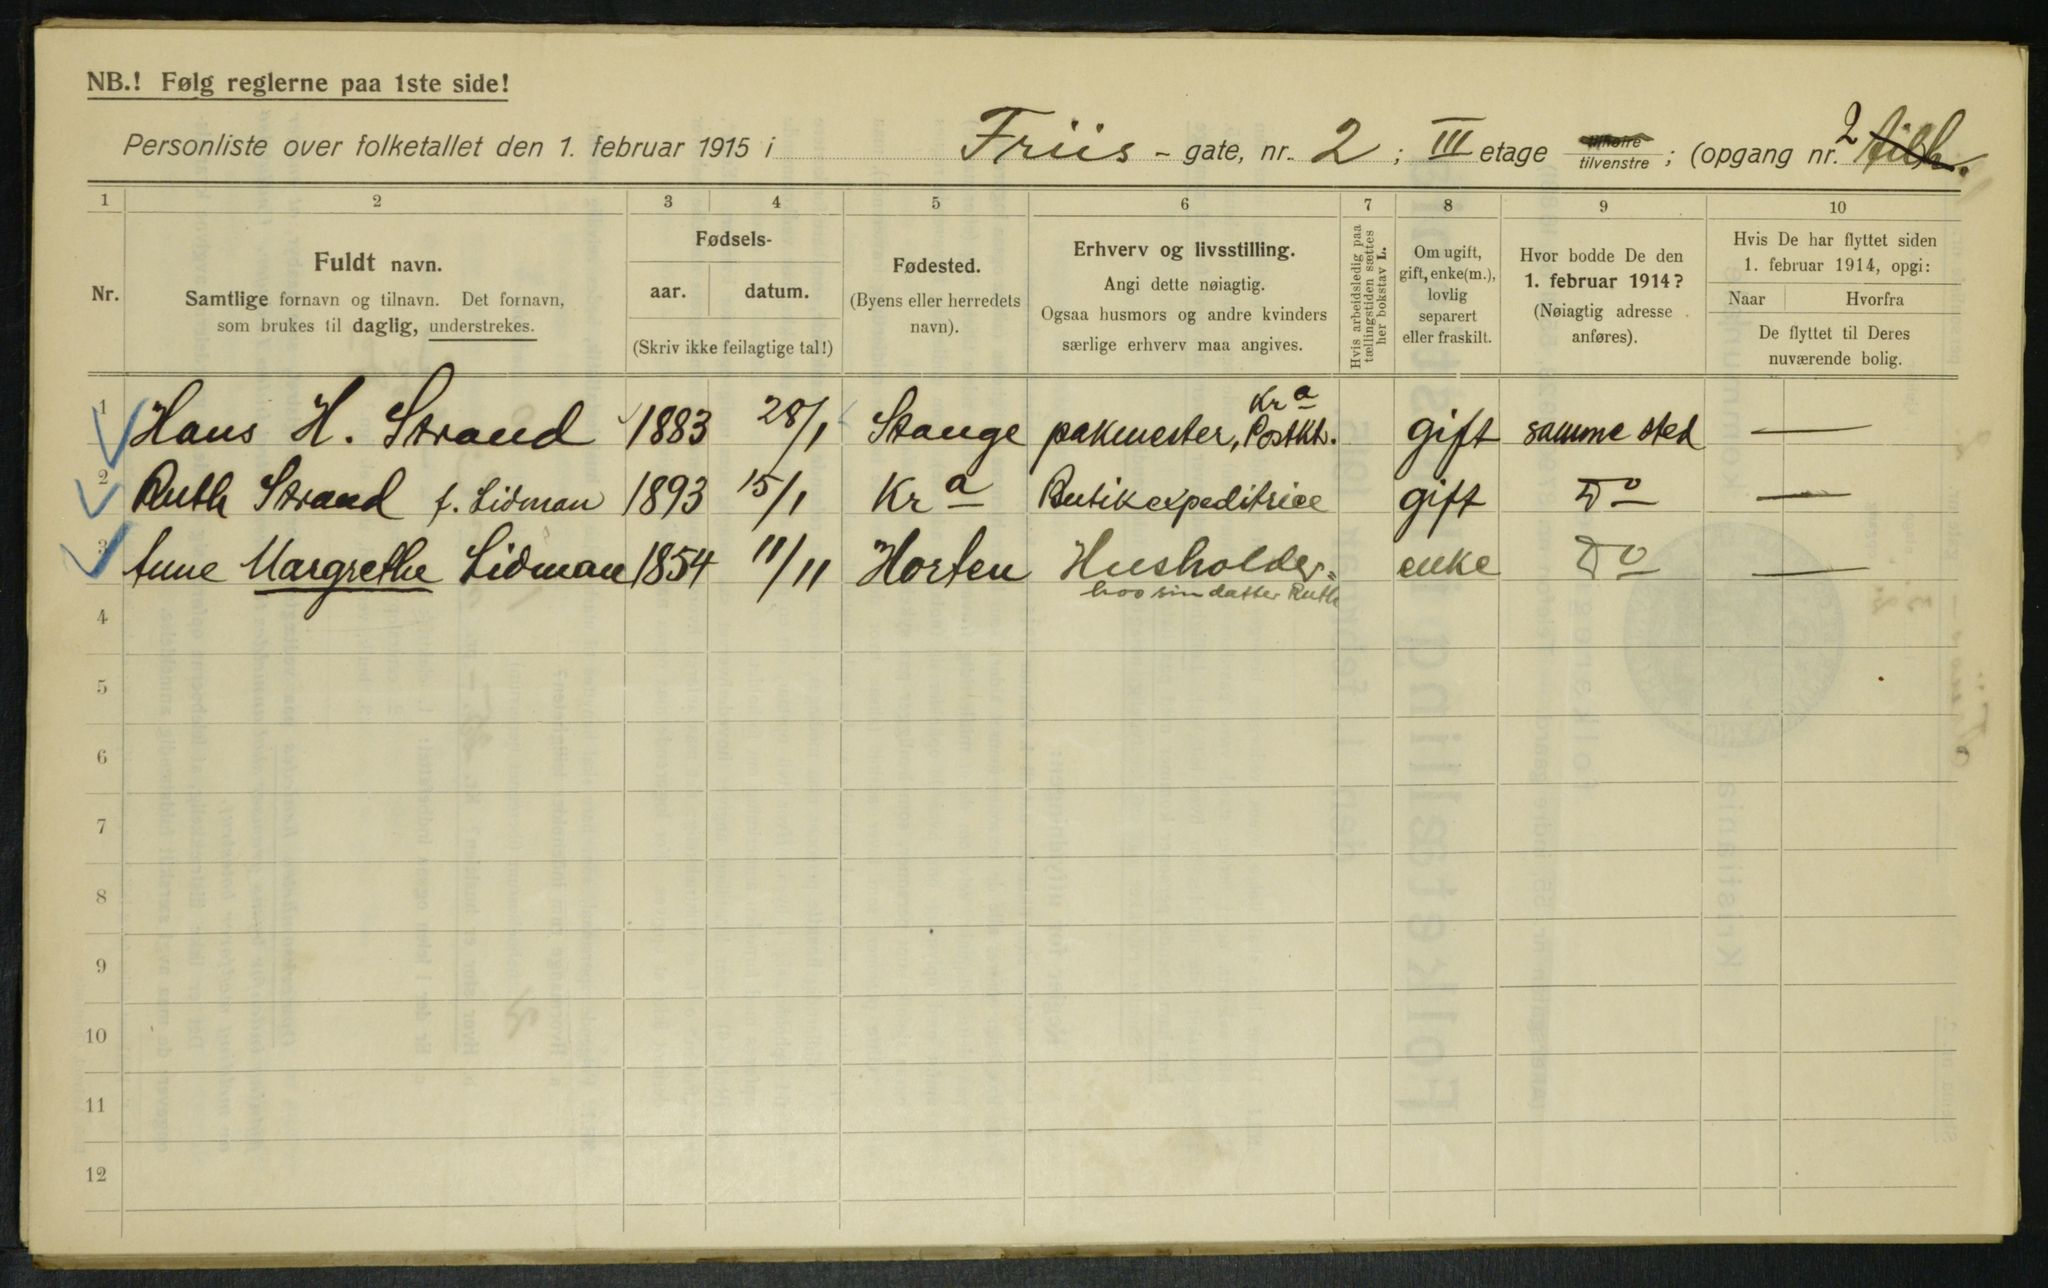 NB.! Følg reglerne paa 1ste side!
Personliste over folketallet den 1. februar 1915 i Friis - gate, nr. 2 ; III etage tilhøire tilvenstre ; (opgang nr. 2 tilh.
1 2 3 4 5 6 7 8 9 10
Nr.
Fuldt navn.
Samtlige fornavn og tilnavn. Det fornavn,
som brukes til daglig, understrekes.
Fødsels-
aar. datum.
(Skriv ikke feilagtige tal!)
Fødested.
(Byens eller herredets
navn).
Erhverv og livsstilling.
Angi dette nøiagtig.
Ogsaa husmors og andre kvinders
særlige erhverv maa angives.
Hvis arbeidsledig paa
tællingstiden sættes
her bokstav L.
Om ugift,
gift, enke(m.),
lovlig
separert
eller fraskilt.
Hvor bodde De den
1. februar 1914?
(Nøiagtig adresse
anføres).
Hvis De har flyttet siden
1. februar 1914, opgi:
Naar Hvorfra
De flyttet til Deres
nuværende bolig.
1 Hans H. Strand 1883 28/1 Stange pakmester, Kra Postkt. gift samme sted —
2 Ruth Strand f. Lidman 1893 15/1 Kra Butikexpeditrice gift Do —
3 Anne Margrethe Lidman 1854 11/11 Horten Husholder- enke Do —
hos sin datter Ruth
4
5
6
7
8
9
10
11
12